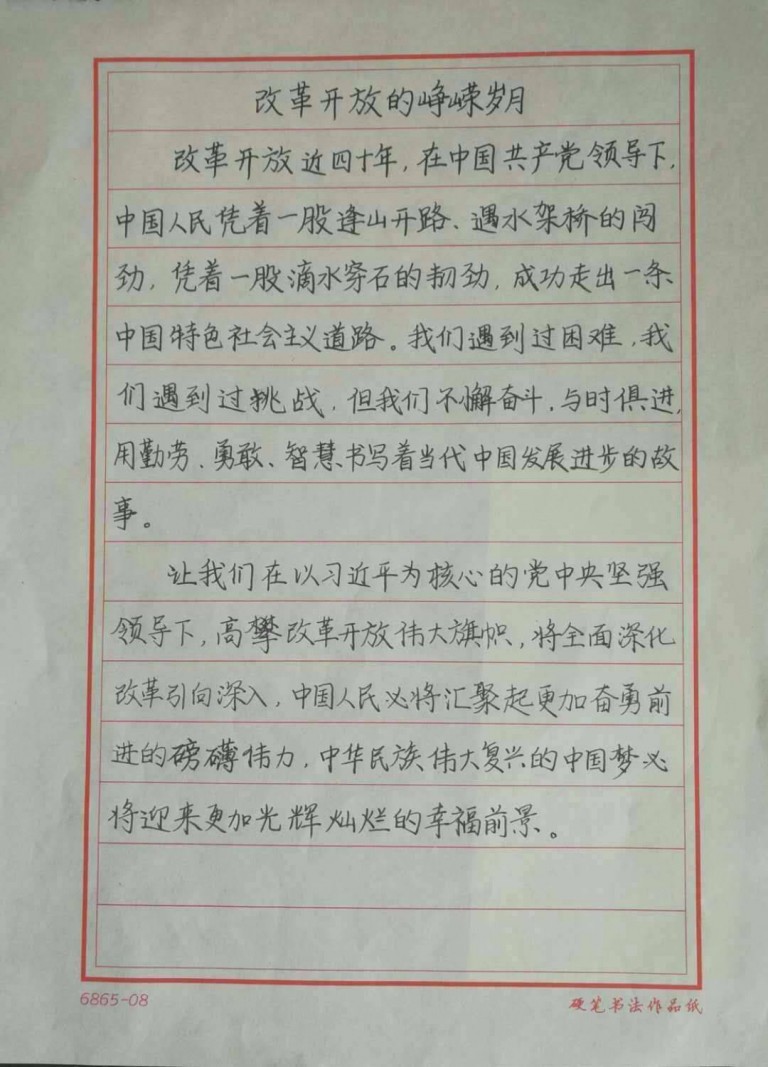 改革开放的峥嵘岁月
改革开放近四十年，在中国共产党领导下，
中国人民凭着一股逢山开路、遇水架桥的闯
劲，凭着一股滴水穿石的韧劲，成功走出一条
中国特色社会主义道路。我们遇到过困难，我
们遇到过挑战，但我们不懈奋斗，与时俱进，
用勤劳、勇敢、智慧书写着当代中国发展进步的故
事。
让我们在以习近平为核心的党中央坚强
领导下，高攀改革开放伟大旗帜，将全面深化
改革引向深入，中国人民必将汇聚起更加奋勇前
进的磅礴伟力，中华民族伟大复兴的中国梦必
将迎来更加光辉灿烂的幸福前景。
6865-08
硬笔书法作品纸